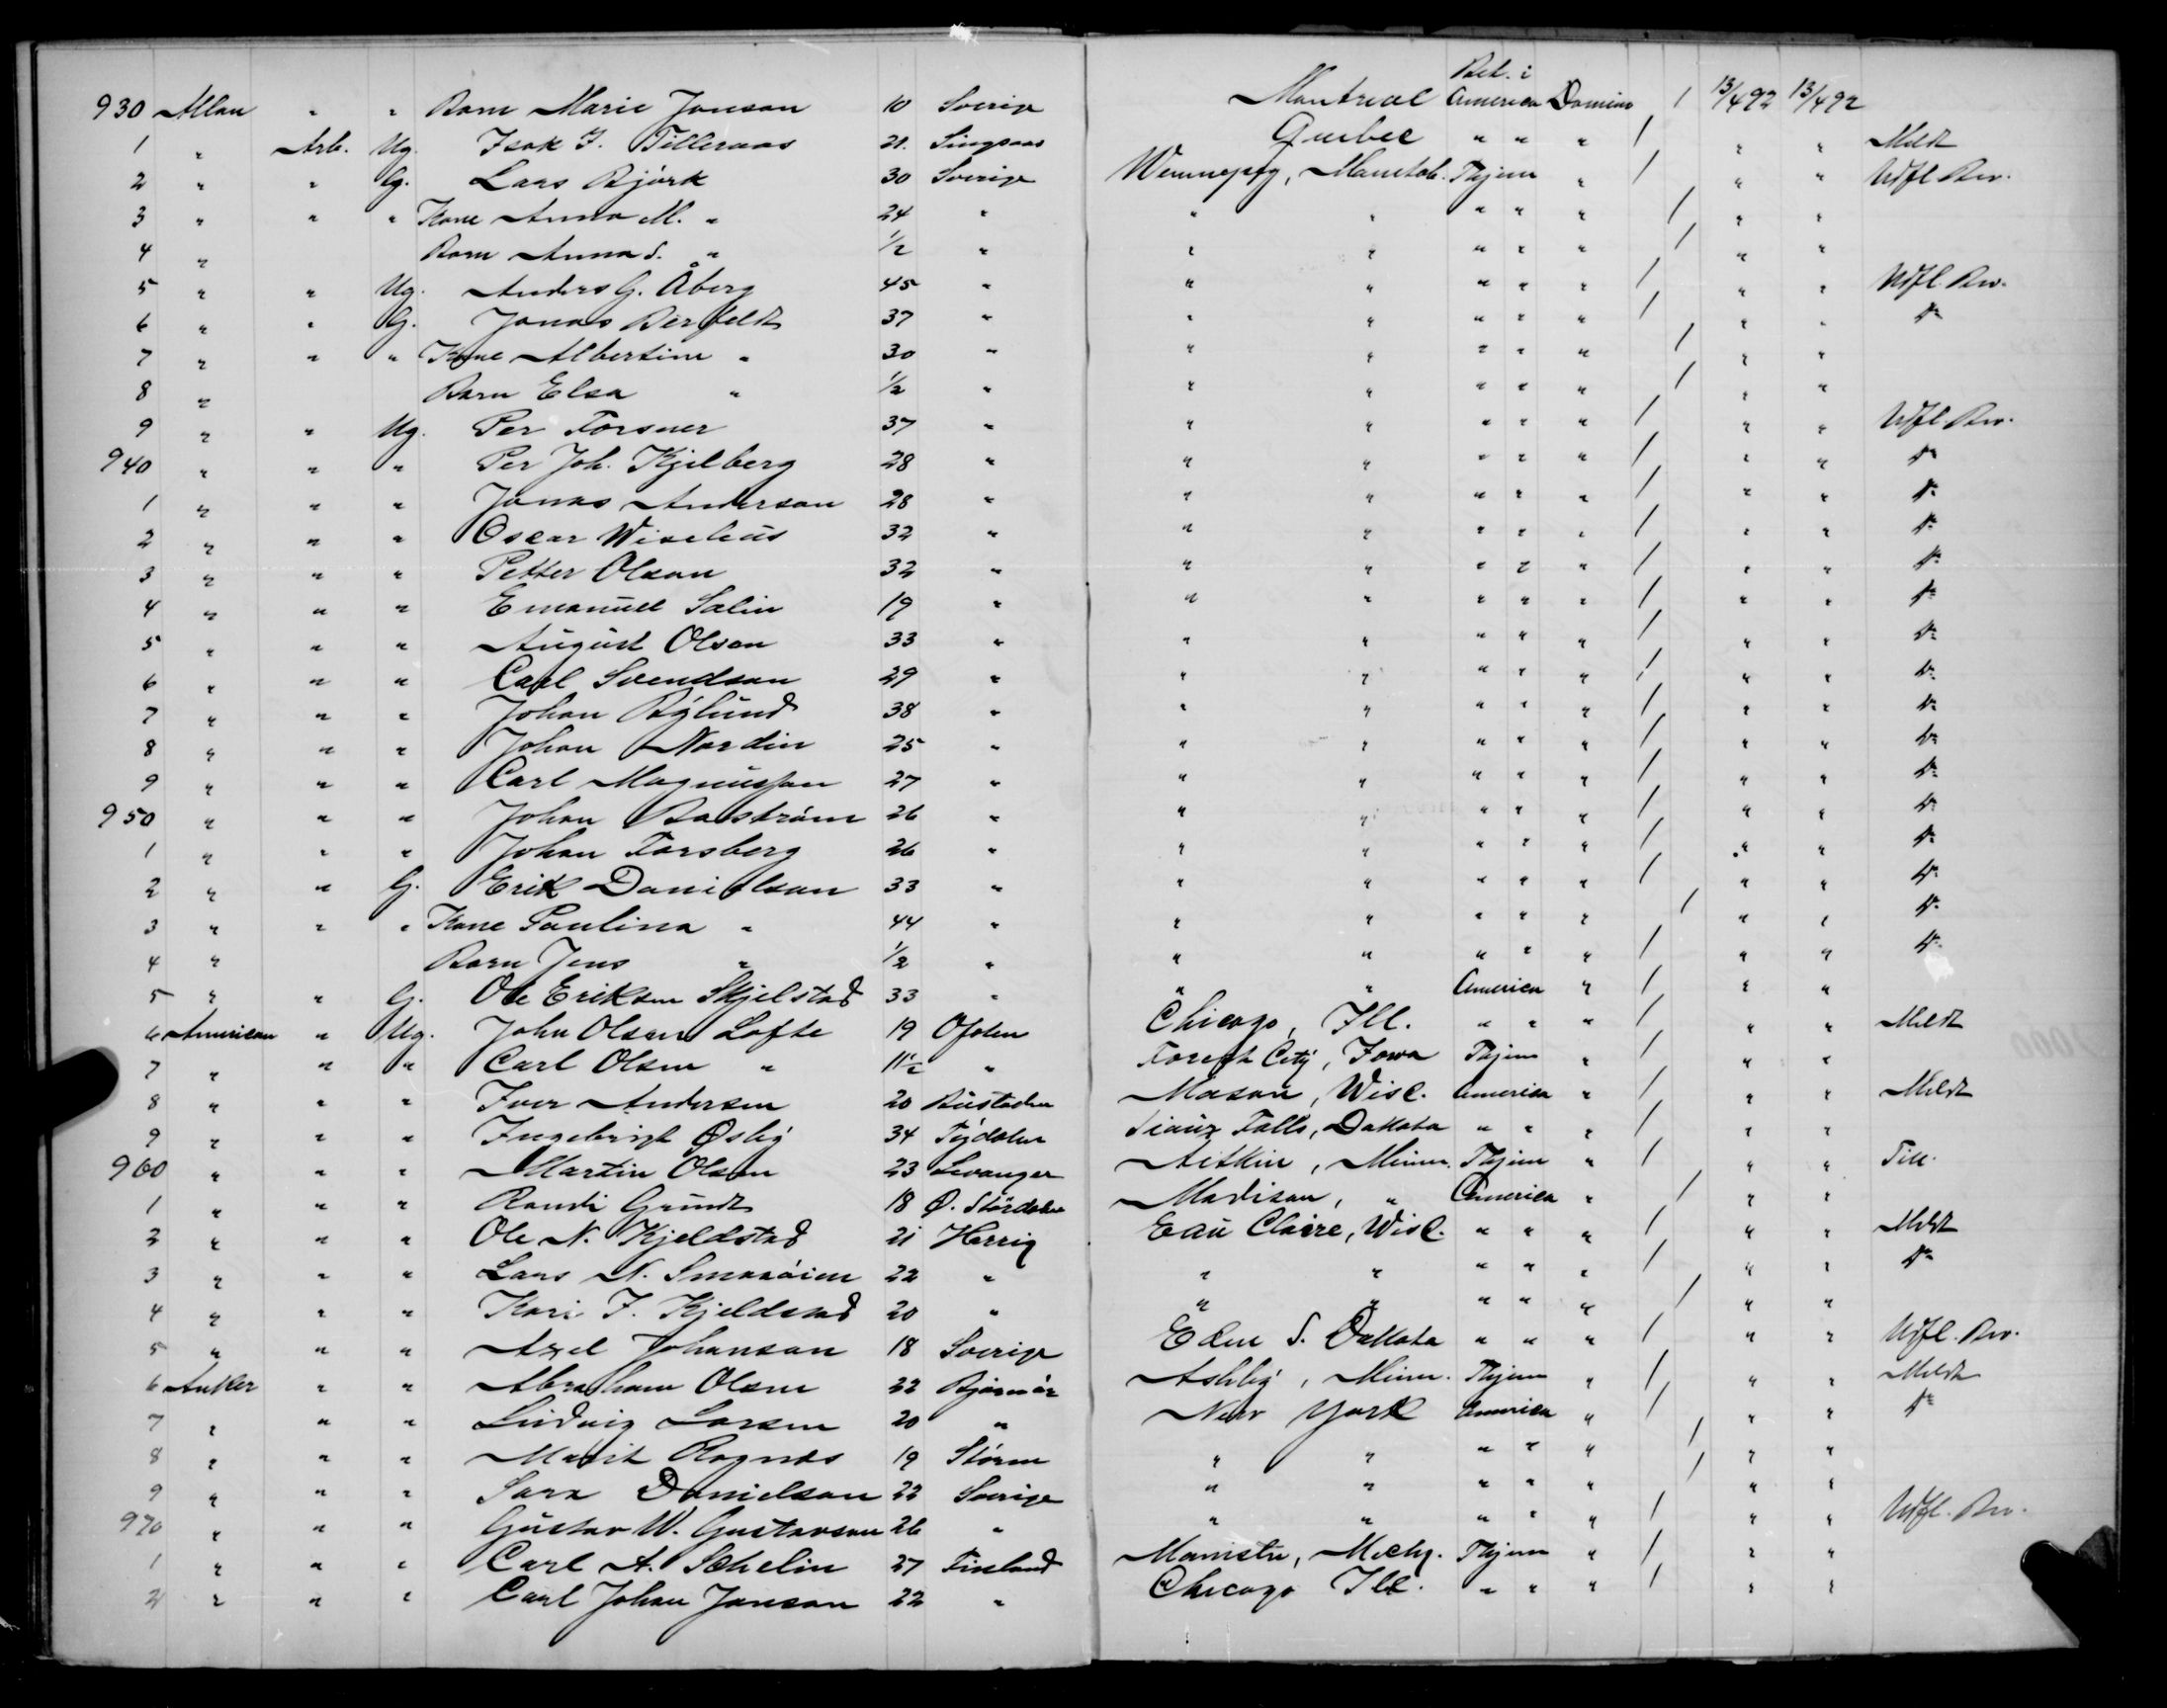 930 Allan " " Barn Marie Jonson 10 Sverige Montreal Bet. i America Domino / 13/4 92 13/4 92
1 " Arb. Ug. Isak J. Tilleraas 21 Singsaas Quebec " " " / " " Meldt
2 " " G. Lars Björk 30 Sverige Winnepeg, Manitob. Thjem " / " " Udfl. Bev.
3 " " " Kone Anna M. " 24 " " " " " " / " "
4 " Barn Anna S. " 1/2 " " " " " " / " "
5 " " Ug. Anders G. Åberg 45 " " " " " " / " " Udfl. Bev.
6 " " G. Jonas Berfeldt 37 " " " " " " / " " do
7 " " " Kone Albertine " 30 " " " " " " / " "
8 " Barn Elsa " 1/2 " " " " " " / " "
9 " " Ug. Per Forsner 37 " " " " " " / " " Udfl. Bev.
940 " " " Per Joh. Kjelberg 28 " " " " " " / " " do
1 " " " Jonas Anderson 28 " " " " " " / " " do
2 " " " Oscar Wiselius 32 " " " " " " / " " do
3 " " " Petter Olson 32 " " " " " " / " " do
4 " " " Emanuel Salin 19 " " " " " " / " " do
5 " " " August Olson 33 " " " " " " / " " do
6 " " " Carl Svendson 29 " " " " " " / " " do
7 " " " Johan Bylund 38 " " " " " " / " " do
8 " " " Johan Nordin 25 " " " " " " / " " do
9 " " " Carl Magnusson 27 " " " " " " / " " do
950 " " " Johan Boström 26 " " " " " " / " " do
1 " " " Johan Forsberg 26 " " " " " " / " " do
2 " " G. Erik Danielson 33 " " " " " " / " " do
3 " " " Kone Paulina " 44 " " " " " " / " " do
4 " Barn Jens " 1/2 " " " " " " / " " do
5 " " G. Ole Eriksen Skjelstad 33 " " " America " / " "
6 American " Ug. John Olsen Lofte 19 Ofoten Chicago, Ill. " " " / " " Meldt
7 " " " Carl Olsen " 11 1/2 " Forest City, Iowa Thjem " / " "
8 " " " Iver Andersen 20 Budstaden Mason, Wisc. America " / " " Meldt
9 " " " Ingebrigt Østby 34 Tydalen Sioux Falls, Dakota " " " / " "
960 " " " Martin Olsen 23 Levanger Aitkin, Minn. Thjem " / " "
1 " " " Randi Grundt 18 Ø. Stördalen Madison, " America " / " "
2 " " " Ole N. Kjeldstad 21 Eau Claire, Wisc. " " " / " " Meldt
3 " " " Lars N. 22 " " " " " " / " " do
4 " " " Kari J. Kjeldstad 20 " " " " " " / " "
5 " " " Axel Johanson 18 Sverige Eden S. Dakota " " " / " " Udfl. Bev.
6 Anker " " Abraham Olsen 22 Bjørnör Ashby, Minn. Thjem " / " " Meldt
7 " " " Ludvig Larsen 20 " New York America " / " " do
8 " " " Marit Rognes 19 Støren " " " " " / " "
9 " " " Sara Danielson 22 Sverige " " " " " / " "
970 " " " Gustav W. Gustavson 26 " " " " " " / " " Udfl. Bev.
1 " " " Carl A. Schelin 27 Finland Manistee, Mich. Thjem " / " "
2 " " " Carl Johan Janson 22 " Chicago Ill. " " " / " "